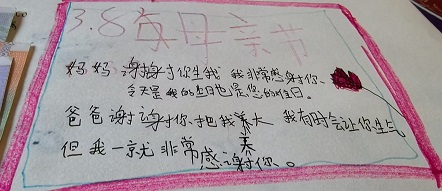 3.8 母亲节
妈妈 谢谢你生我 我非常感谢你、
今天是我的生日也是您的生日。
爸爸谢谢你、把我养大 我有时会让你生气
但我一就非常感谢你。